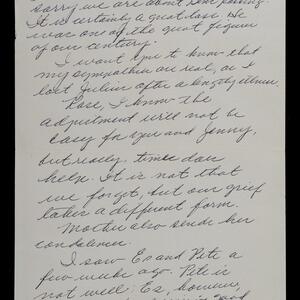 sorry we are about Sem passing.
It is certainly a great loss. He
was one of the great figures
of our century.
I want you to know that
my sympathies are real, as I
lost Julius after a lengthy illness.
Rose, I know the
adjustment will not be
easy for you and Jenny,
but really, time does
help. It is not that
we forget, but our grief
takes a different form.
Mother also sends her
condolences.
I saw Es and Pete a
few weeks ago. Pete is
not well. Es, however,